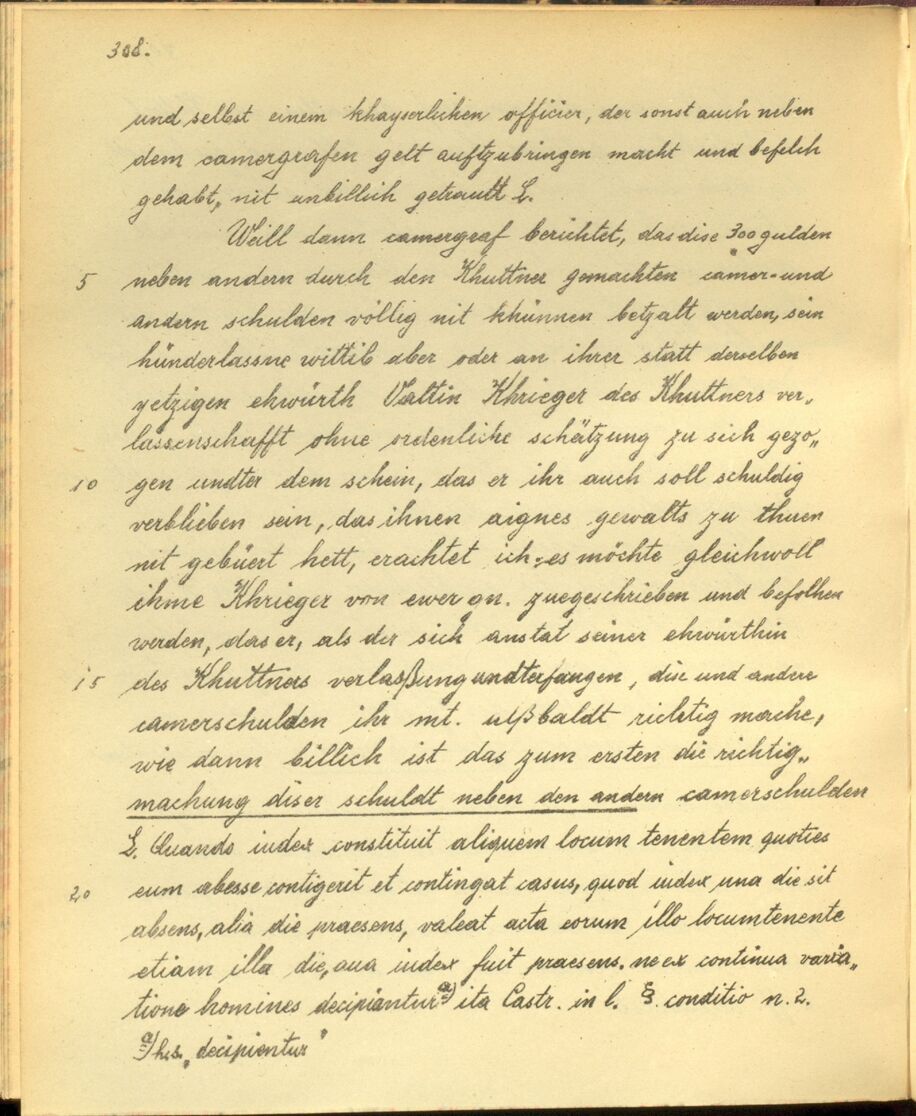 308.
und selbst einem khayserlichen officier, der sonst auch neben
dem camergrafen gelt auftzubringen macht und befelch
gehabt, nit unbillich getrautt L.
Weill dann camergraf berichtet, das dise 300 gulden
5 neben andern durch den Khuttner gemachten camer- und
andern schulden völlig nit khünnen betzalt werden, sein
hünderlassne wittib aber oder an ihrer statt derselben
yetzigen ehwürth Valtin Khrieger des Khuttners ver„
lassenschafft ohne ordenliche schätzung zu sich gezo„
10 gen undter dem schein, das er ihr auch soll schuldig
verblieben sein, das ihnen aignes gewalts zu thuen
nit gebüert hett, erachtet ich, es möchte gleichwoll
ihme Khrieger von ewer gn. zuegeschrieben und befolhen
werden, das er, als der sich anstat seiner ehwürthin
15 des Khuttners verlaßung undterfangen, dise und andere
camerschulden ihr mt. alßbaldt richtig mache,
wie dann billich ist das zum ersten die richtig„
machung diser schuldt neben den andern camerschulden
L. Quando iudex constituit aliquem locum tenentem quoties
20 eum abesse contigerit et contingat casus, quod iudex una die sit
absens, alia die praesens, valeat acta eorum illo locumtenente
etiam illa die, qua iudex fuit praesens. ne ex continua varia„
tione homines decipiantur a) ita Castr. in l. § conditio n. 2.
a) hs. „decipientur"